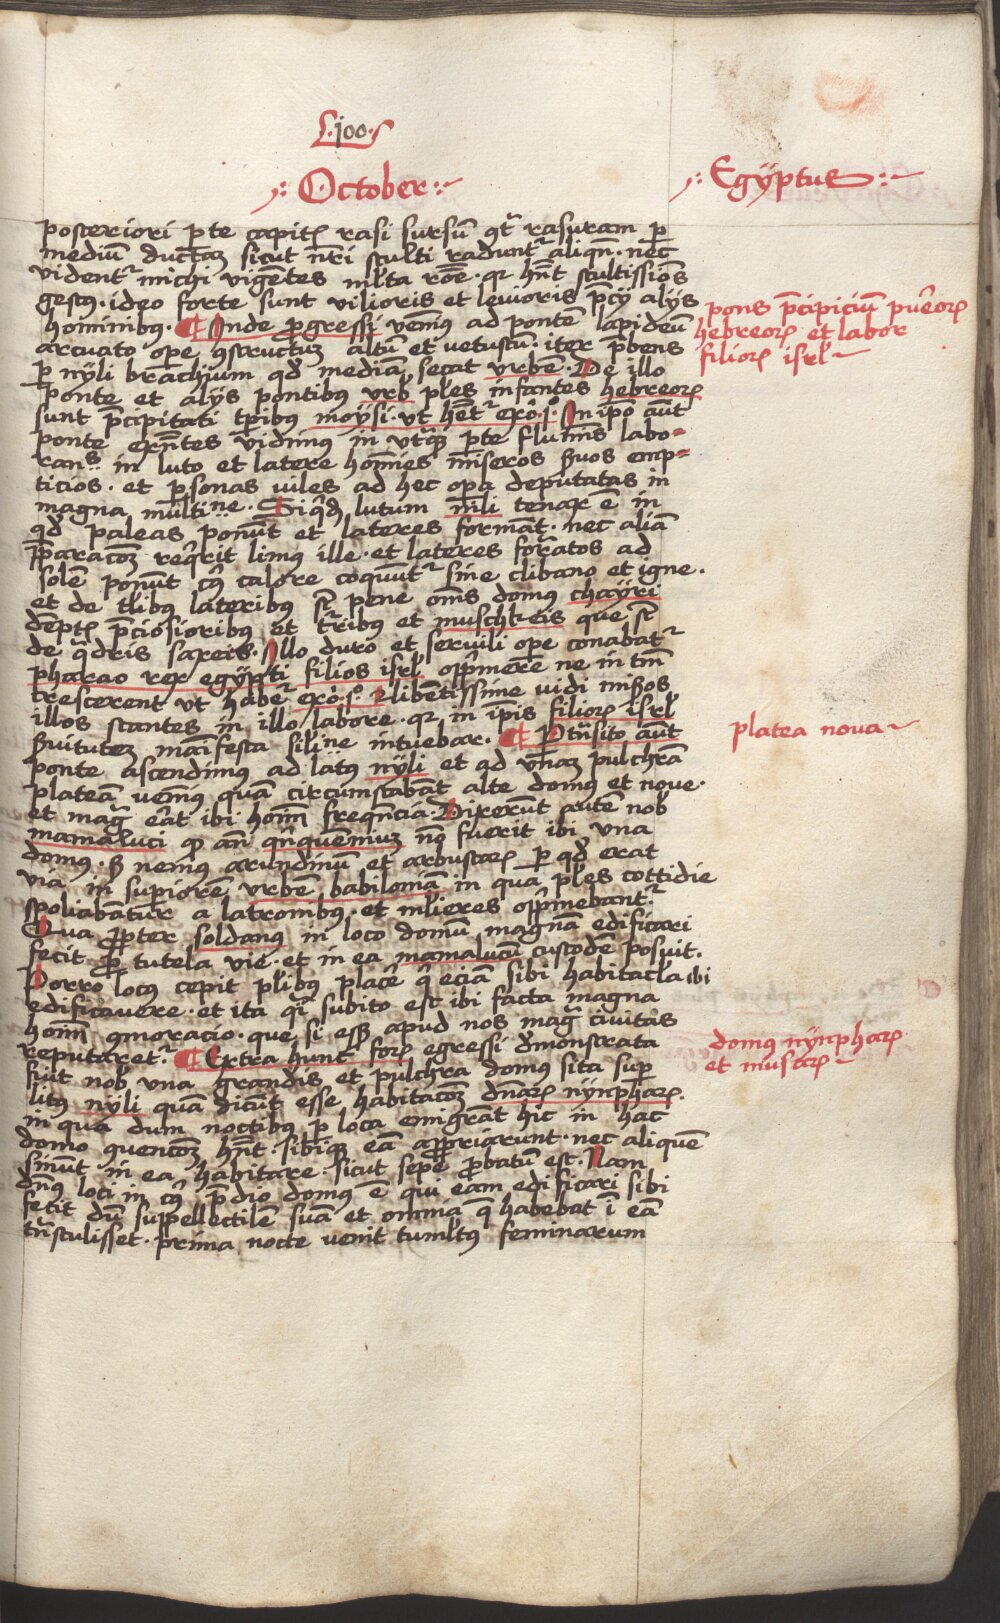 ·100·
October
Egÿptus
posteriori pte capitꝭ rasi sursū ɋtͣ rasuram p
mediū ductaʒ sicut nr̄i stulti raduntᷣ aliqn̄· nec
videntᷣ michi vigētes mlta roē· qꝛ hn̄t stultissiōs
gestꝰ· ideo forte sunt vilioris et leuioris p̄cij alijs
hominibꝰ· ¶ Inde p̱gressi venimꝰ ad pontē lapideū
arcuato ope ɋstructuʒ altū et vetustū· iter p̄bens
p nÿli brachium qd̓ mediam secat vrbē· De illo
ponte et alijs pontibꝰ vrb̓ ples infantes hebreoꝝ
sunt p̄cipitati tp̱ribꝰ moÿsi· vt hr̄tᷣ exo· j̊· In ipo aūt
ponte exn̄tes vidimꝰ in vtqʒ pte fluminis labo⸗
rantes in luto et latere homīes miseros s̓uos emp⸗
ticios· et p̱sonas viles ad hec oꝑa deputatas in
magna mltine· Siq̓dē lutum nili tenax ē in
qd̓ paleas ponūt et lateres formāt· nec aliā
p̱paracōʒ req̓rit limꝰ ille· et lateres formatos ad
solē ponūt cꝰ calore coquūtᷣ sine clibano et igne·
et de tlibꝰ lateribꝰ st̄ pene om̄s domus chaÿri
dēptꝭ p̄ciosioribꝰ et tr̄ribꝰ et muschkeis que st̄
de q̓dris saxeis· Illo duro et seruili ope conabatᷣ
pharao rex egÿpti filios isrl̓ opp̓mere ne in tm̄
crescerent vt habetᷣ exo· j̊· Et libētissime vidi mis̓os
illos stantes in illo labore· qꝛ in ip̄is filioꝝ isrl̓
s̓uitutem māifesta silīne intuebar· ¶ Ptn̄sito aūt
ponte ascendimꝰ ad latꝰ nÿli et ad vnaʒ pulchrā
plateā venimꝰ quā circumstabāt alte domꝰ et noue·
et magͣ erat ibi hoīm freqn̄cia· Dixerūt autē nob̓
mamaluci ꝙ an̄ qn̓quēnniuʒ nō fuerit ibi vna
domꝰ· s̓ nemꝰ arundinū et arbustoꝝ p qd̓ erat
via in supiorē vrbē babiloniā in qua ples cottidie
spoliabātur a latronibꝰ· et mlieres opp̓mebantᷣ·
Qua p̱pter soldanꝰ in loco domū magnā edificari
fecit p̱ tutela vie· et in ea mamalucū custodē posuit·
Porro locꝰ cepit plibꝰ placē q̓ eciā sibi habitacla ibi
edificauere· et ita q̓ subito est ibi facta magna
hoīm ɋmoracio· que si eēt apud nos magͣ ciuitas
reputaretᷣ· ¶ Extra hunc foꝝ egressi d̓monstrata
fuit nob̓ vna grandis et pulchra domꝰ sita sup
litꝰ nÿli quā dicūt esse habitacōʒ dn̄aꝝ nÿmpharꝝ·
in qua dum noctibꝰ p loca emigrāt hic in hac
domo quencōʒ hn̄t· sibiqʒ eā app̱riarunt· nec aliquē
sinūt in ea habitare· sicut sepe p̱batū est· Nam
dn̄s loci in cꝰ p̄dio domꝰ ē qui eam edificari sibi
fecit dū supellectilē suā et omnia q̄ habebat ī eā
tn̄stulisset· prima nocte venit tumltꝰ feminarum
pons p̄cipiciū pueroꝝ
hebreoꝝ et labor
filioꝝ isrl̓
platea nova
domus nÿnphaꝝ
et musaꝝ